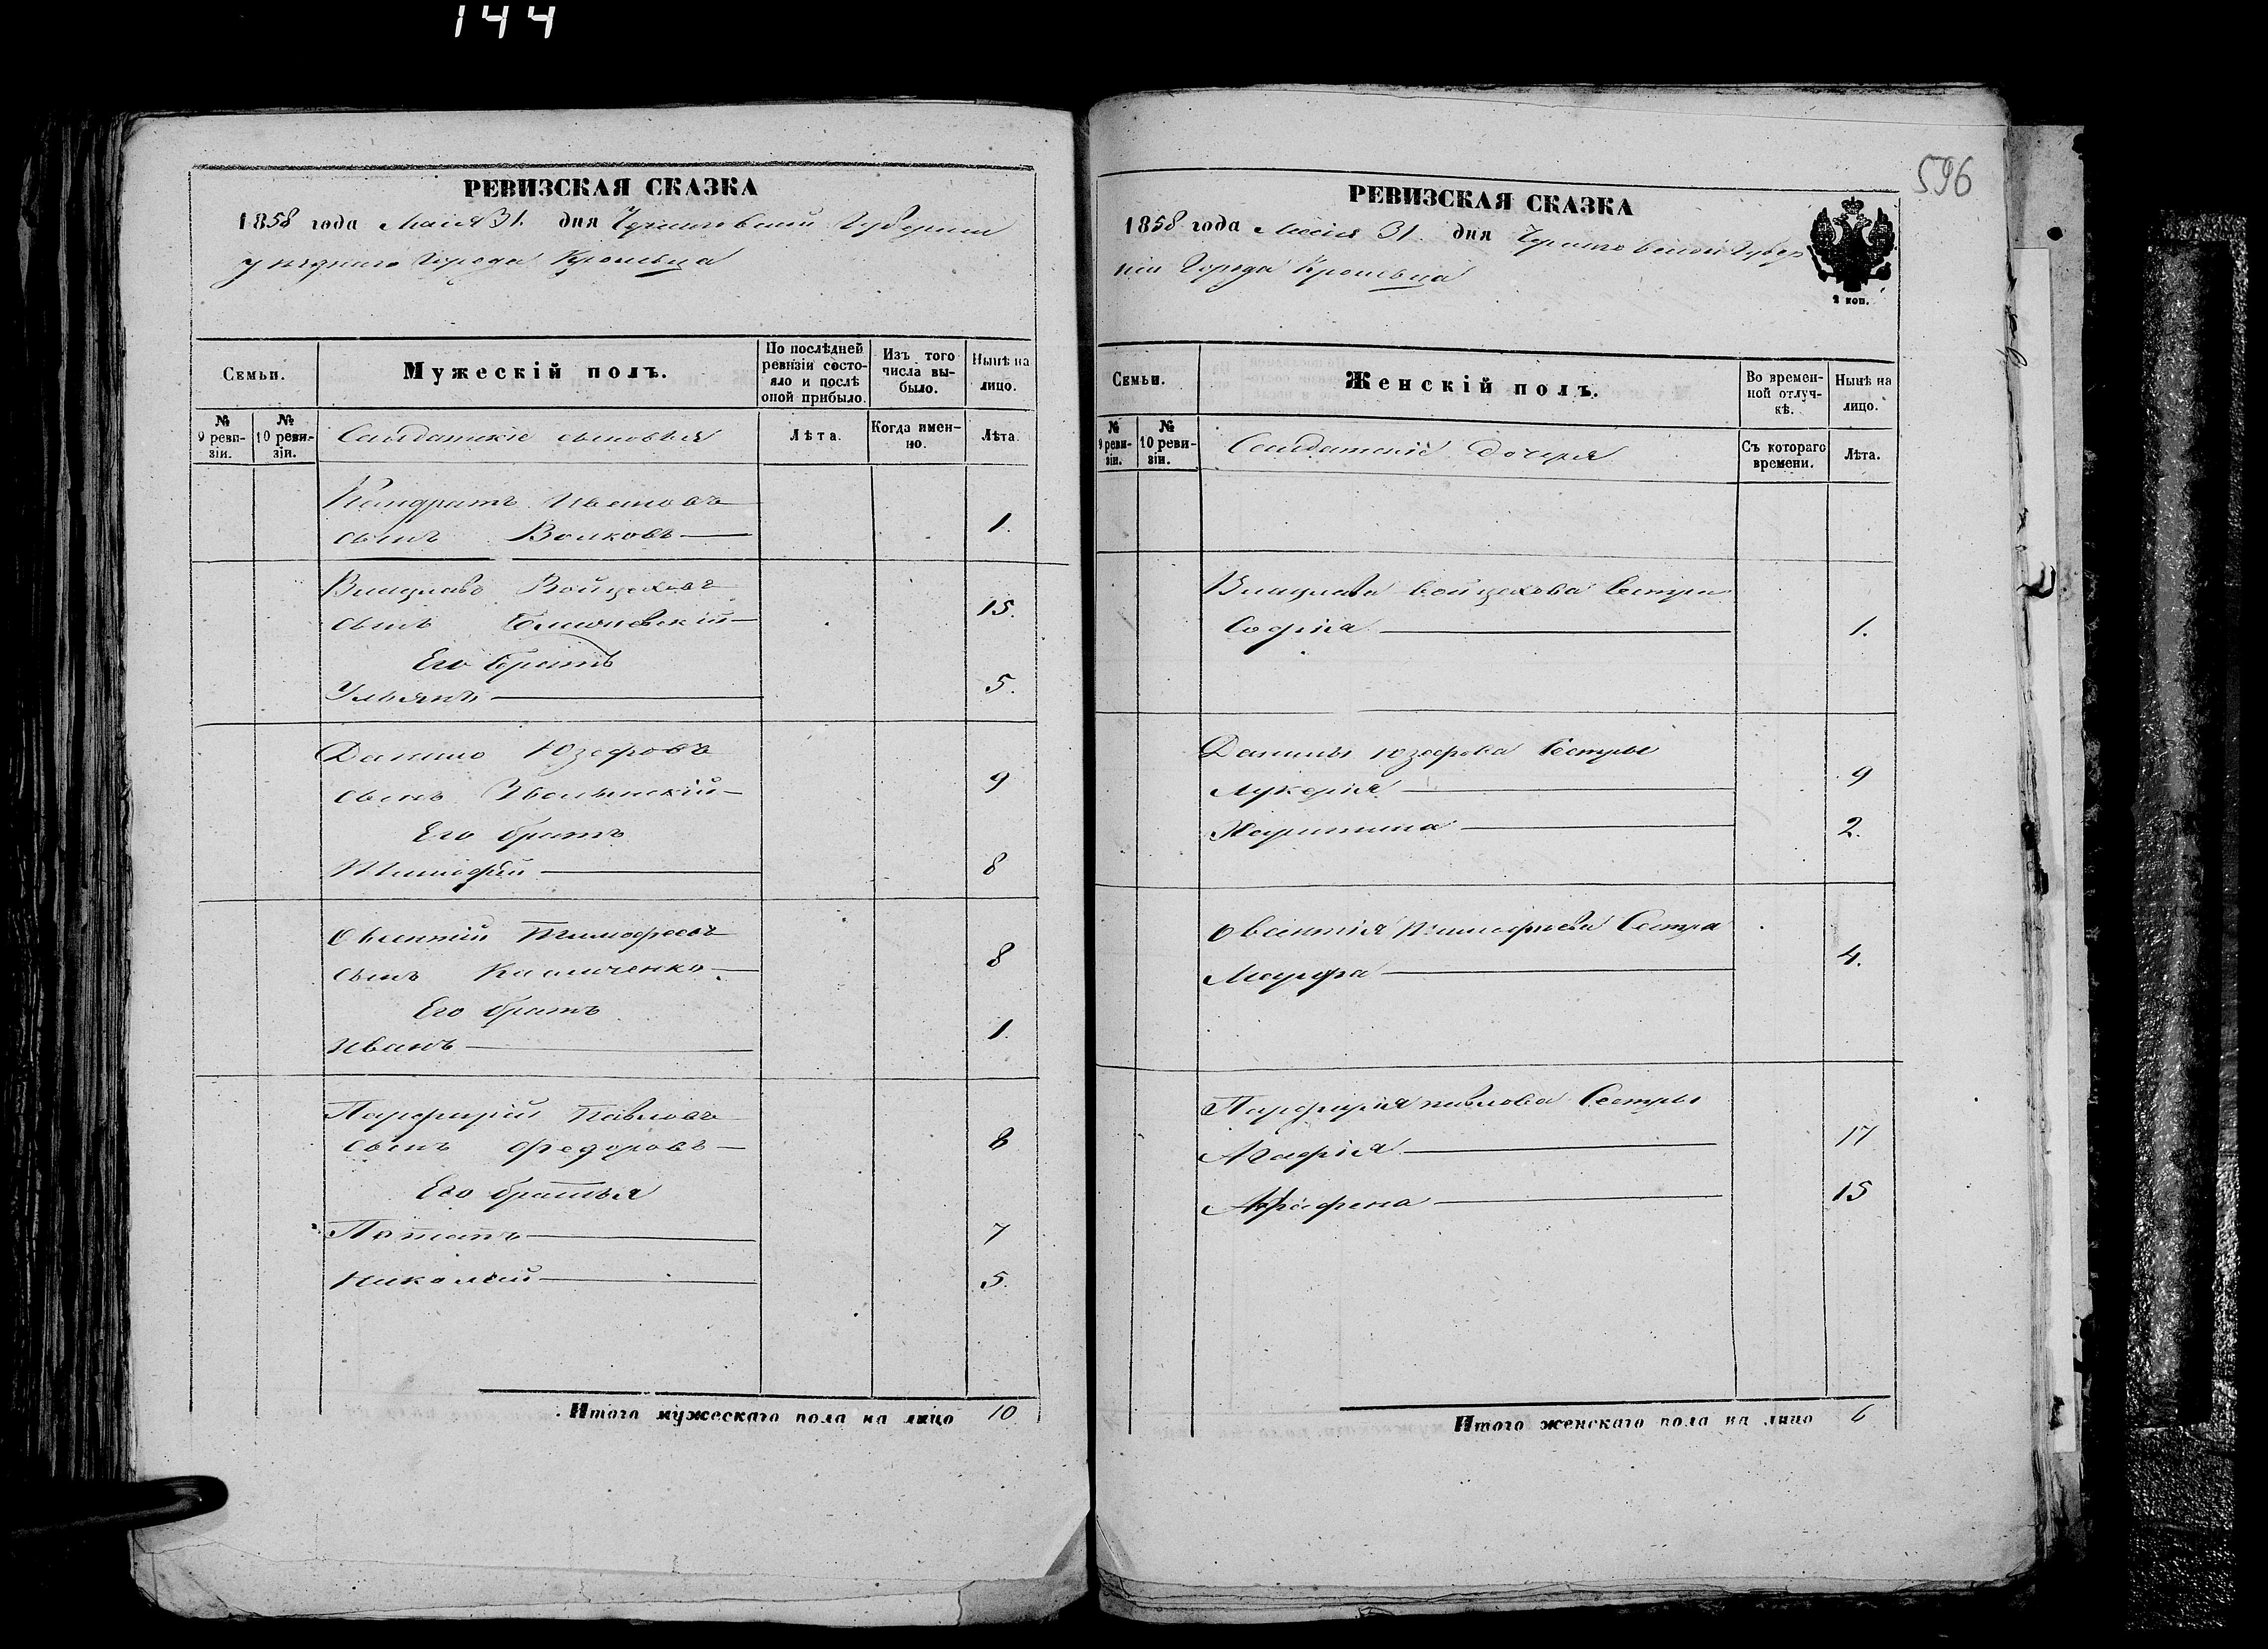 144
РЕВИЗСКАЯ СКАЗКА
1858 года Маія 31. дня Черниговской Губерніи
уезднаго Города Кролевца
Семьи.
Мужескій полъ.
По послѣдней ревизіи состояло и послѣ оной прибыло.
Изъ того числа выбыло.
Нынѣ на лицо.
№ 9 ревизіи.
№ 10 ревизіи.
Салдатскіе сыновья
Лѣта.
Когда именно.
Лѣта.
Кондратъ Ивановъ
сынъ Волковъ 1.
Войцеховъ
сынъ 15.
Его братъ
Ульянъ 5.
Данило Юзефовъ
сынъ 9
Его братъ
Тимофей 8
Тимофеевъ
сынъ 8
Его братъ
Иванъ 1.
Парфирій Павловъ
сынъ Федоровъ 8
Его братья
Потапъ 7
Николай 5.
Итого мужескаго пола на лицо 10
596
РЕВИЗСКАЯ СКАЗКА
1858 года Маія 31. дня Черниговской Губер
ніи Города Кролевца
2 коп.
Семьи.
Женскій полъ.
Во временной отлучкѣ.
Нынѣ на лицо.
№ 9 ревизіи.
№ 10 ревизіи.
Салдатскіе дочеря
Съ котораго времени.
Лѣта.
Войцехова Сестра
Софія 1.
Данилы Юзефова Сестры
Лукерія 9
Харитина 2.
Тимофеева Сестра
Марфа 4.
Парфирія Павлова Сестры
Агафія 17
Аграфена 15
Итого женскаго пола на лицо 6